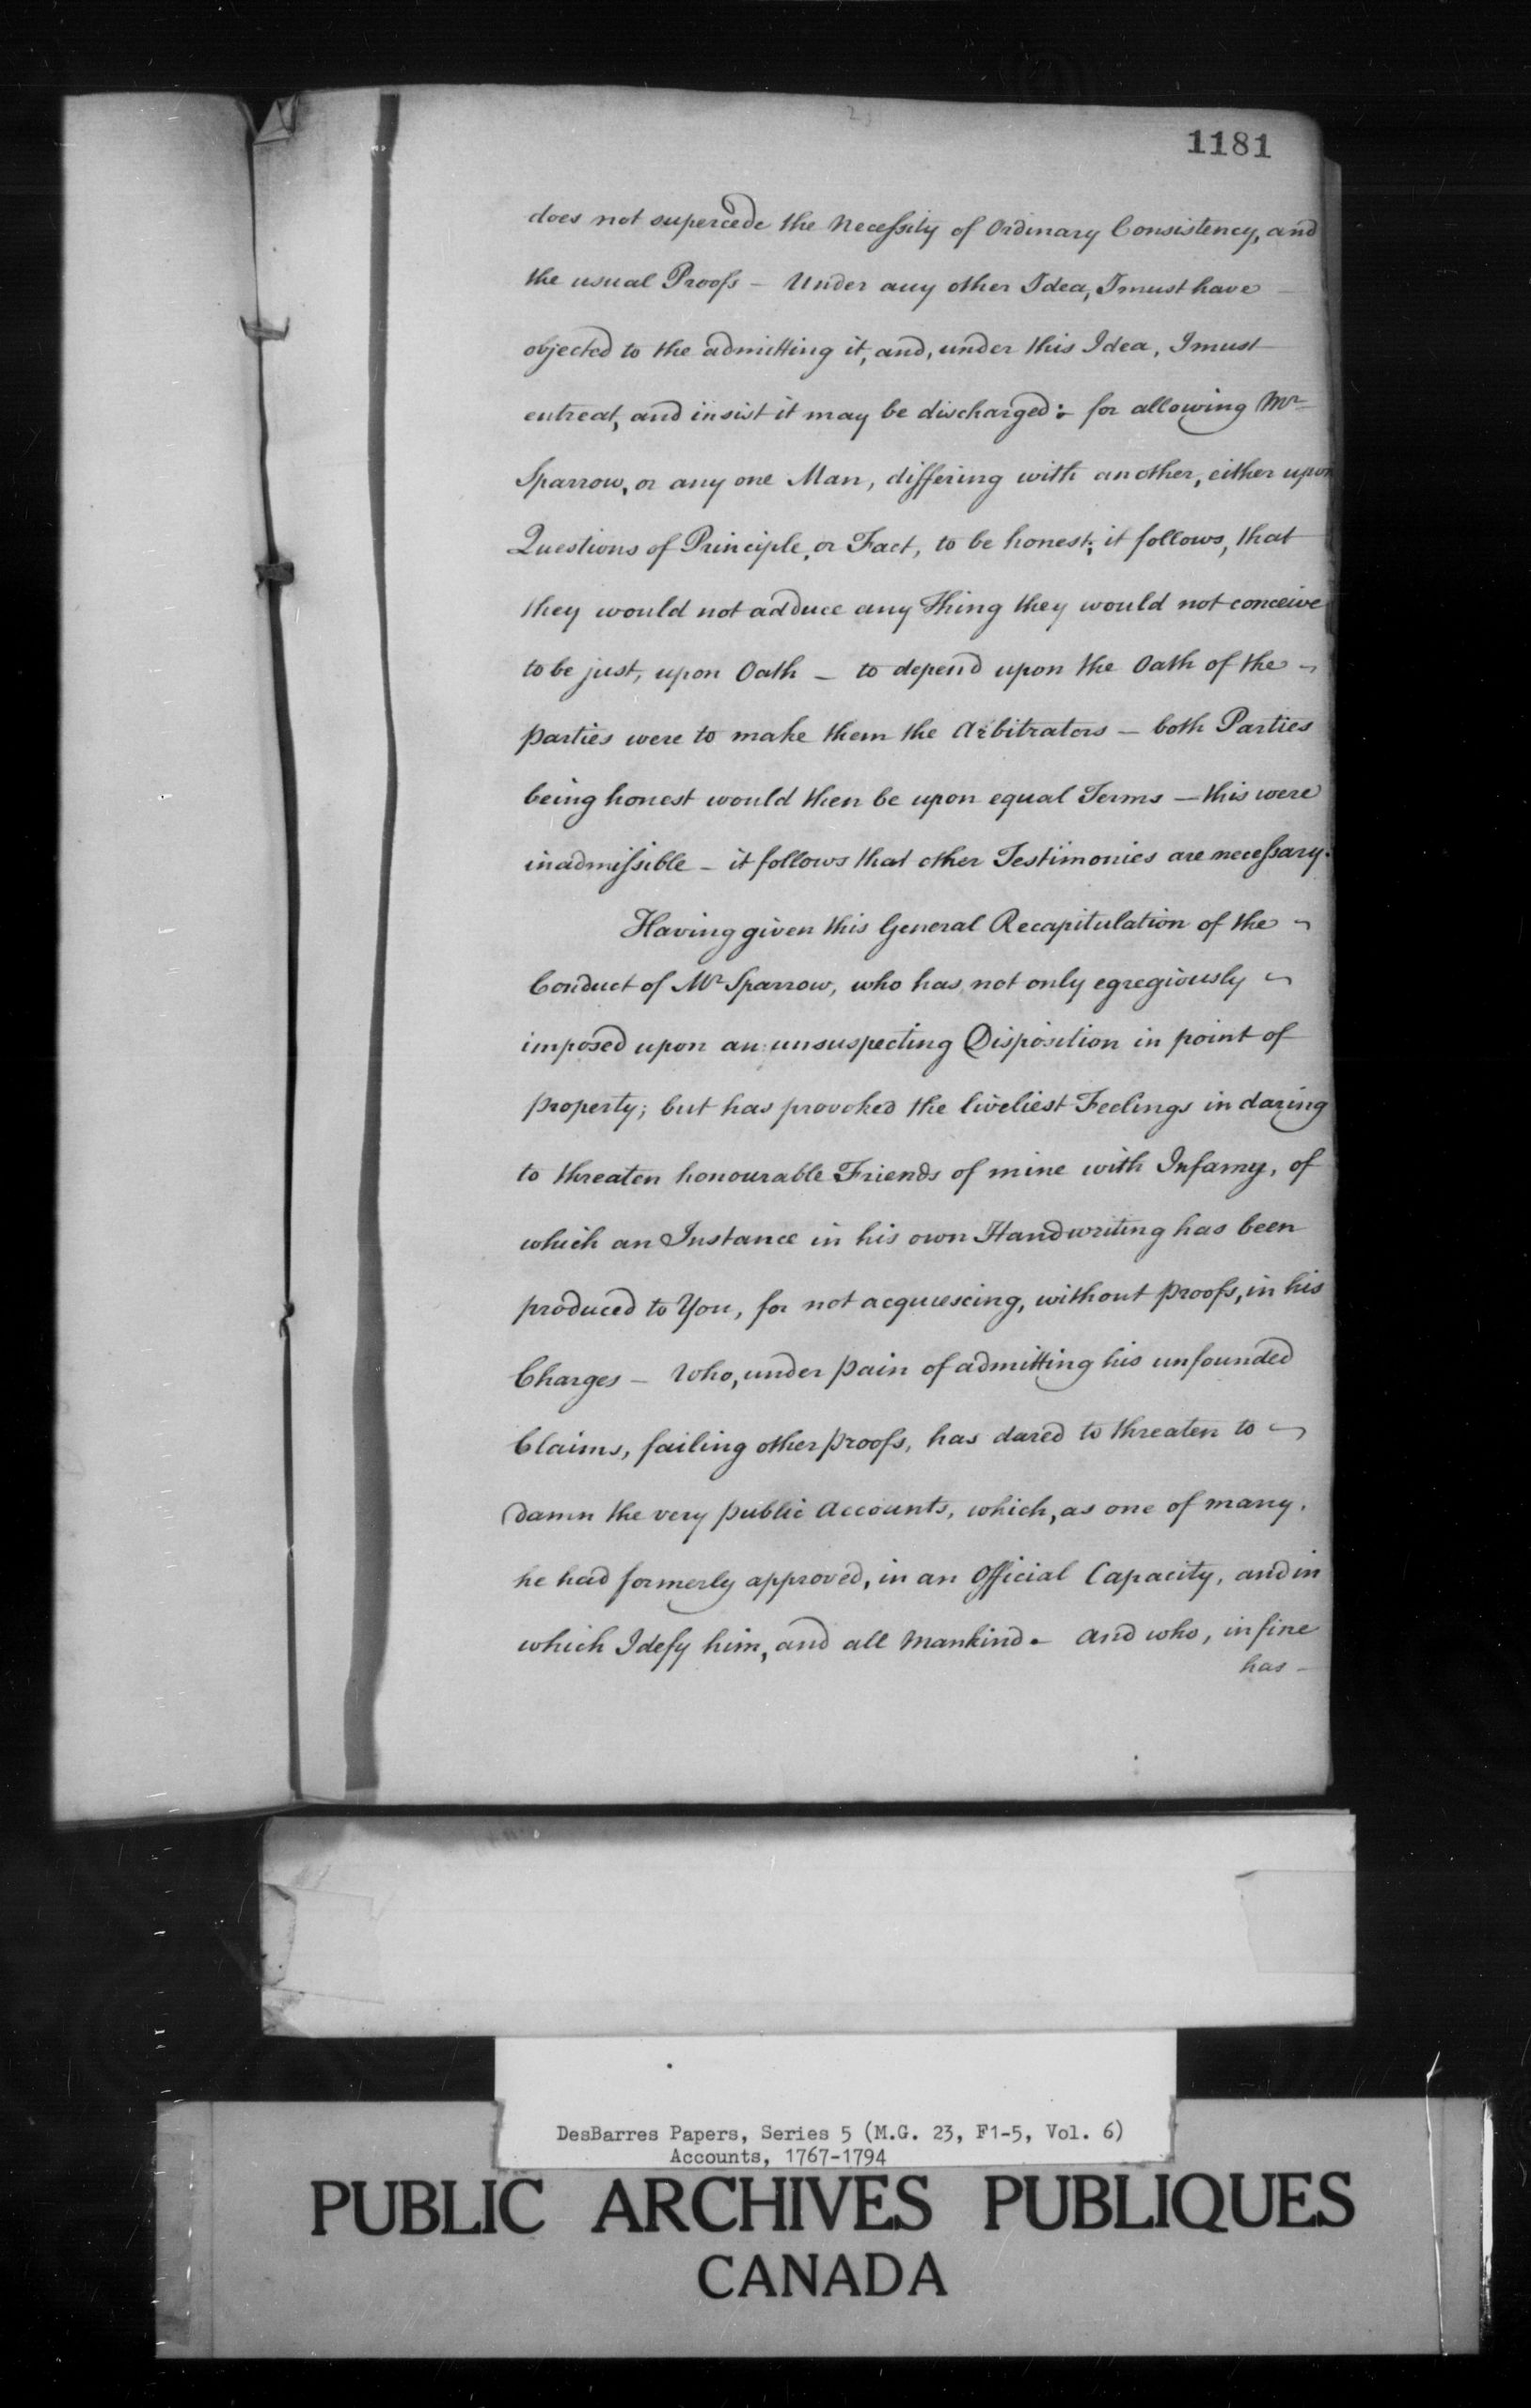 1181
does not supercede the Necessity of Ordinary Consistency, and
the usual Proofs – Under any other Idea, I must have
objected to the admitting it, and, under this Idea, I must
entreat, and insist it may be discharged: for allowing Mr
Sparrow, or any one Man, differing with another, either upon
Questions of Principle, or Fact, to be honest; it follows, that
they would not adduce any Thing they would not conceive
to be just, upon Oath – to depend upon the Oath of the
parties were to make them the Arbitrators – both Parties
being honest would then be upon equal Terms – this were
inadmissible – it follows that other Testimonies are necessary.
Having given this General Recapitulation of the
Conduct of Mr Sparrow, who has not only egregiously
imposed upon an unsuspecting Disposition in point of
property; but has provoked the liveliest Feelings in daring
to threaten honourable Friends of mine with Infamy, of
which an Instance in his own Handwriting has been
produced to You, for not acquiescing, without proofs, in his
Charges – Who, under pain of admitting his unfounded
Claims, failing other proofs, has dared to threaten to
damn the very public Accounts, which, as one of many,
he had formerly approved, in an Official Capacity, and in
which I defy him, and all Mankind. And who, in fine
has –
DesBarres Papers, Series 5 (M.G. 23, F1-5, Vol. 6)
Accounts, 1767-1794
PUBLIC ARCHIVES PUBLIQUES
CANADA